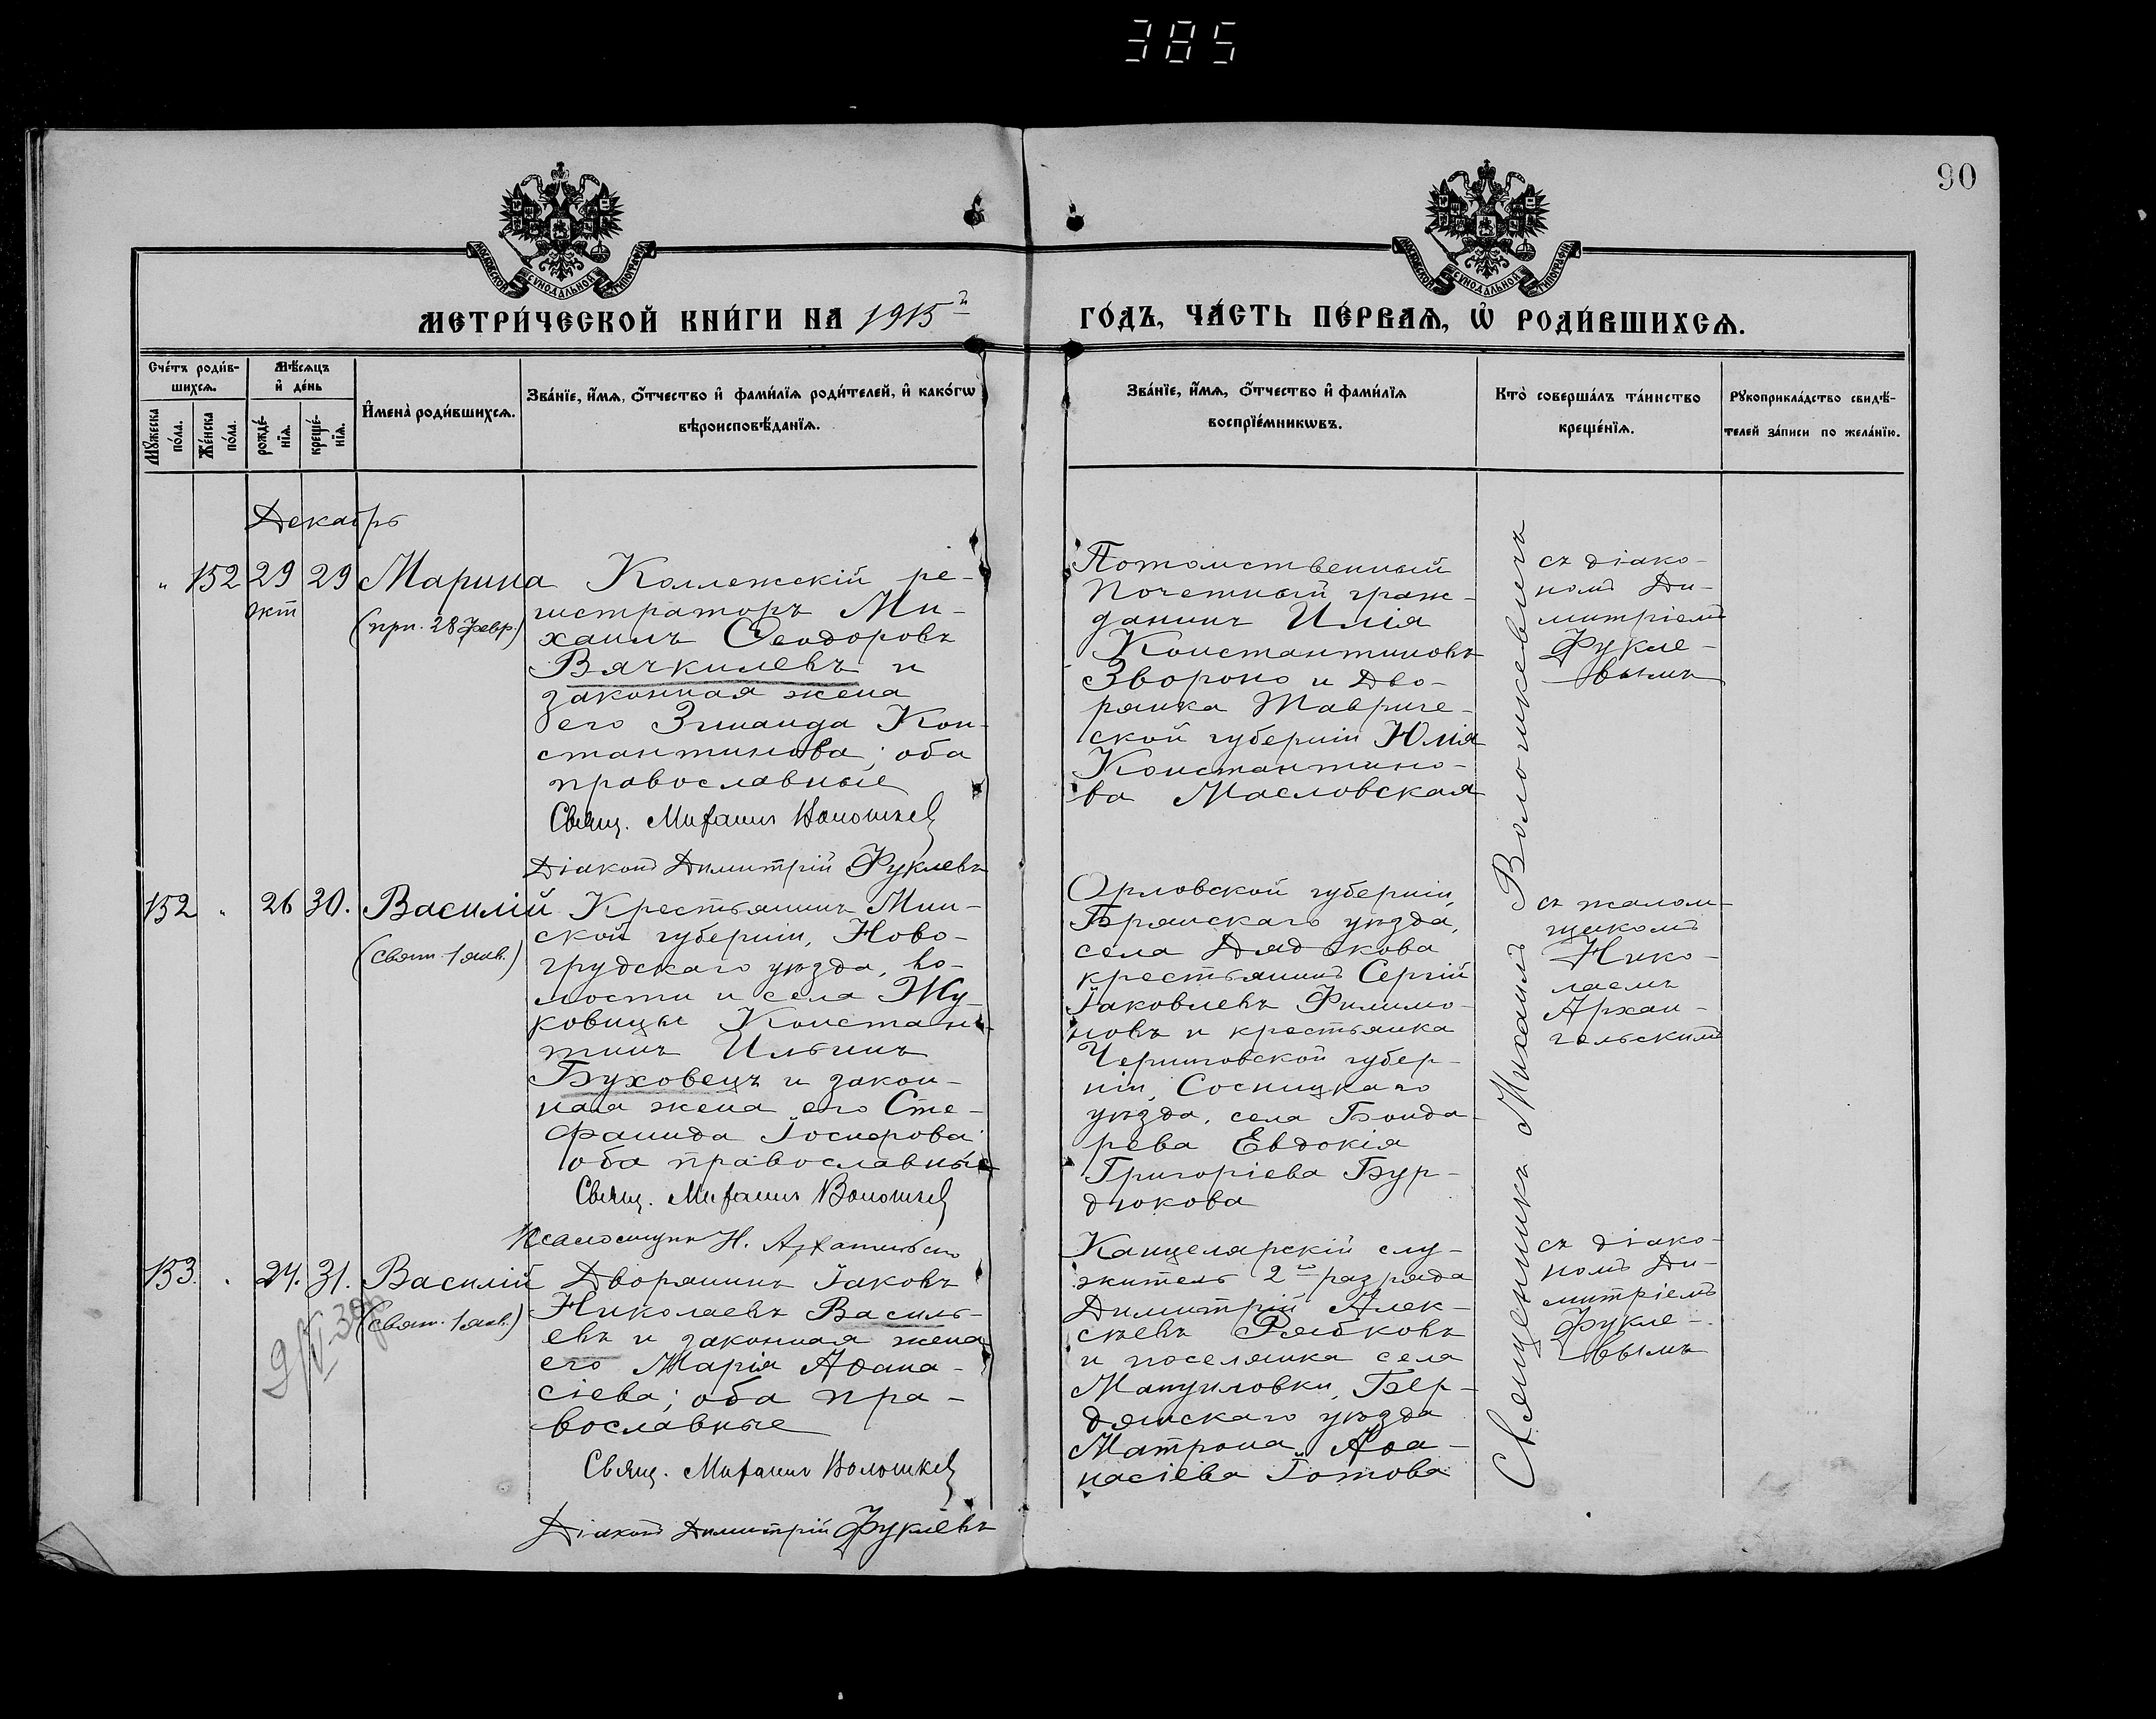 385
90
МЕТРИ́ЧЕСКОЙ КНИ́ГИ НА 1915й
ГО́ДЪ, ЧА́СТЬ ПЕ́РВАѦ, Ѡ҆ РОДИ́ВШИХСѦ.
Сче́тъ роди́в-
шихсѧ.
Мꙋ́жеска
по́ла.
Же́нска
по́ла.
Мѣ́сѧцъ
и҆ де́нь
рожде́-
нїѧ.
креще́-
нїѧ.
И҆мена̀ роди́вшихсѧ.
Зва́нїе, и҆́мѧ, ѻ҆́тчество и҆ фами́лїѧ роди́телей, и҆ како́гѡ
вѣроисповѣ́данїѧ.
Зва́нїе, и҆́мѧ, ѻ҆́тчество и҆ фами́лїѧ
воспрїе́мникѡвъ.
Кто̀ соверша́лъ та́инство
креще́нїѧ.
Рꙋкоприкла́дство свидѣ́-
телей за́писи по жела́нїю.
Декабрь
" 152 29 29 Марина
окт
(прп. 28 февр.)
Коллежскій ре-
гистраторъ Ми-
хаилъ Ѳеодоровъ
Вячкилевъ и
законная жена
его Зинаида Кон-
стантинова; оба
православные
Свящ. Михаилъ Волошкев
Діаконъ Димитрій Фуклевъ
Потомственный
почетный граж-
данинъ Илія
Константиновъ
Звороно и дво-
рянка Тавриче-
ской губерніи Юлія
Константино-
ва Масловская
съ діако-
номъ Ди-
митріемъ
Фукле-
вымъ
Священникъ Михаилъ Волошкевичъ
152 " 26 30. Василій
(свят. 1 янв.)
Крестьянинъ Мин-
ской губерніи, Ново-
грудскаго уѣзда, во-
лости и села Жу-
ковицы Констан-
тинъ Ильинъ
Буховецъ и закон-
ная жена его Сте-
фанида Іосифова
оба православные
Свящ. Михаилъ Волошкев
Псаломщикъ Н. Архангельскій
Орловской губерніи,
Брянскаго уѣзда,
села Дядькова
крестьянинъ Сергій
Іаковлевъ Филимо-
новъ и крестьянка
Черниговской губер-
ніи, Сосницкаго
уѣзда, села Бонда-
рева Евдокія
Григоріева Бур-
дюкова
съ псалом-
щикомъ
Нико-
лаемъ
Архан-
гельскимъ
153. " 24. 31. Василій
(свят. 1 янв.)
Дворянинъ Іаковъ
Николаевъ Василь-
евъ и законная жена
его Марія Аѳана-
сіева; оба пра-
вославные
Свящ. Михаилъ Волошкев
Діаконъ Димитрій Фуклевъ
Канцелярскій слу-
житель 2го разряда
Димитрій Алек-
сѣевъ Рябковъ
и поселянка села
Мануиловки, Бер-
дянскаго уѣзда
Матрона Аѳа-
насіева Готова
съ діако-
номъ Ди-
митріемъ
Фукле-
вымъ